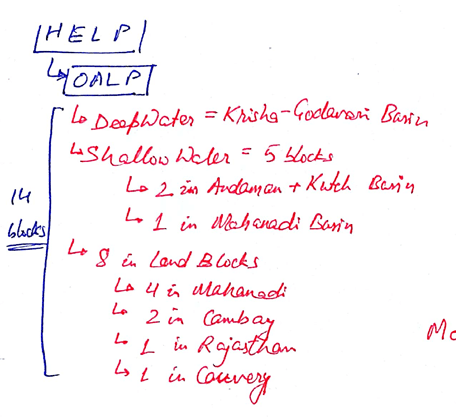 HELP
↳ OALP
↳ Deep Water = Krisha-Godavari Basin
↳ Shallow Water = 5 blocks
↳ 2 in Andaman + Kutch Basin
↳ 1 in Mahanadi Basin
14 blocks
↳ 8 in Land Blocks
↳ 4 in Mahanadi
↳ 2 in Cambay
↳ 1 in Rajasthan
Mo
↳ 1 in Cauvery